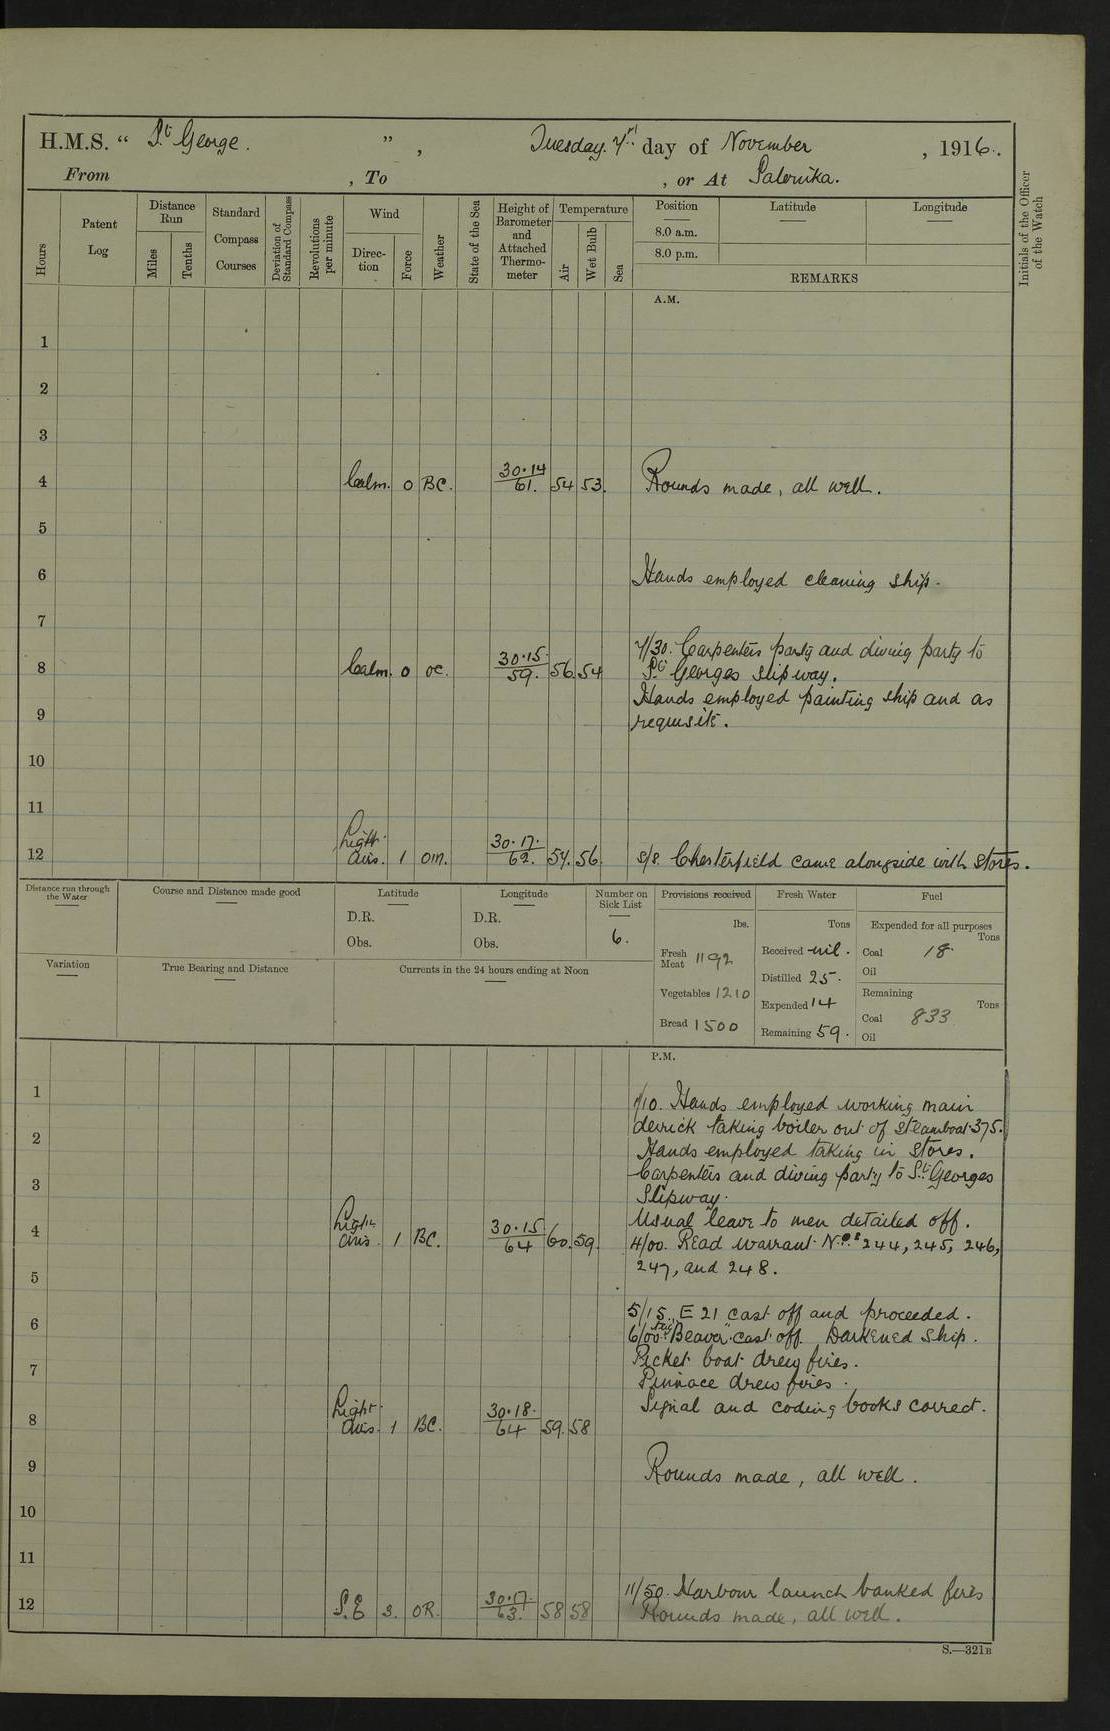 H.M.S. " St George. ", Tuesday. 7th day of November, 1916.
From , To , or At Salonika.
Hours
Patent Log
Distance Run
Miles
Tenths
Standard Compass Courses
Deviation of Standard Compass
Revolutions per minute
Wind
Direction
Force
Weather
State of the Sea
Height of Barometer and Attached Thermometer
Temperature
Air
Wet Bulb
Sea
Position Latitude Longitude
8.0 a.m.
8.0 p.m.
REMARKS
Initials of the Officer of the Watch
A.M.
1
2
3
4 Calm. 0 BC. 30.14/61. 54 53. Rounds made, all well.
5
6 Hands employed cleaning ship.
7
7/30. Carpenters party and diving party to
8 Calm. 0 OC. 30.15/59. 56. 54 St Georges slipway.
Hands employed painting ship and as
9 requisite.
10
11
12 Light airs. 1 OM. 30.17./62. 57. 56. S/S. Chesterfield came alongside with stores.
Distance run through the Water
Course and Distance made good
Latitude
D.R.
Obs.
Longitude
D.R.
Obs.
Number on Sick List
6.
Provisions received
lbs.
Fresh Meat 1192
Vegetables 1210
Bread 1500
Fresh Water
Tons
Received nil.
Distilled 25.
Expended 14
Remaining 59.
Fuel
Expended for all purposes
Tons
Coal 18
Oil
Remaining
Tons
Coal 833
Oil
Variation
True Bearing and Distance
Currents in the 24 hours ending at Noon
P.M.
1 1/10. Hands employed working main
derrick taking boiler out of steamboat 375.
2 Hands employed taking in stores.
3 Carpenters and diving party to St Georges
Slipway.
Usual leave to men detailed off.
4 Light airs. 1 BC. 30.15/64 60. 59. 4/00. Read warrant Nos 244, 245, 246,
247, and 248.
5
5/15. E 21 cast off and proceeded.
6 6/00. "Beaver" cast off. Darkened ship.
7 Picket boat drew fires.
Pinnace drew fires.
8 Light airs. 1 BC. 30.18./64 59. 58 Signal and coding books correct.
9 Rounds made, all well.
10
11
11/50. Harbour launch banked fires
12 S.E 3. OR. 30.17./63. 58 58 Rounds made, all well.
S.—321B